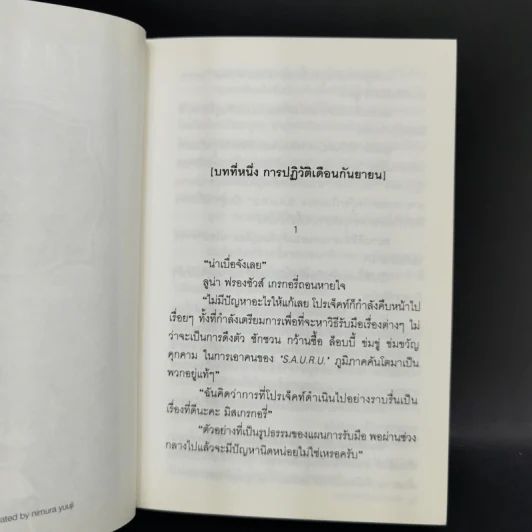 [บทที่หนึ่ง การปฏิวัติเดือนกันยายน]
1
“น่าเบื่อจังเลย”
ลูน่า ฟรองซัวส์ เกรกอรี่ถอนหายใจ
“ไม่มีปัญหาอะไรให้แก้เลย โปรเจ็คท์ก็กำลังคืบหน้าไป
เรื่อยๆ ทั้งที่กำลังเตรียมการเพื่อที่จะหาวิธีรับมือเรื่องต่างๆ ไม่
ว่าจะเป็นการดึงตัว ชักชวน กว้านซื้อ ล็อบบี้ ข่มขู่ ข่มขวัญ
คุกคาม ในการเอาคนของ ‘S.A.U.R.U.’ ภูมิภาคคันโตมาเป็น
พวกอยู่แท้ๆ”
“ฉันคิดว่าการที่โปรเจ็คท์ดำเนินไปอย่างราบรื่นเป็น
เรื่องที่ดีนะคะ มิสเกรกอรี่”
“ตัวอย่างที่เป็นรูปธรรมของแผนการรับมือ พอผ่านช่วง
กลางไปแล้วจะมีปัญหานิดหน่อยไม่ใช่เหรอครับ”
ated by nimura yuuji